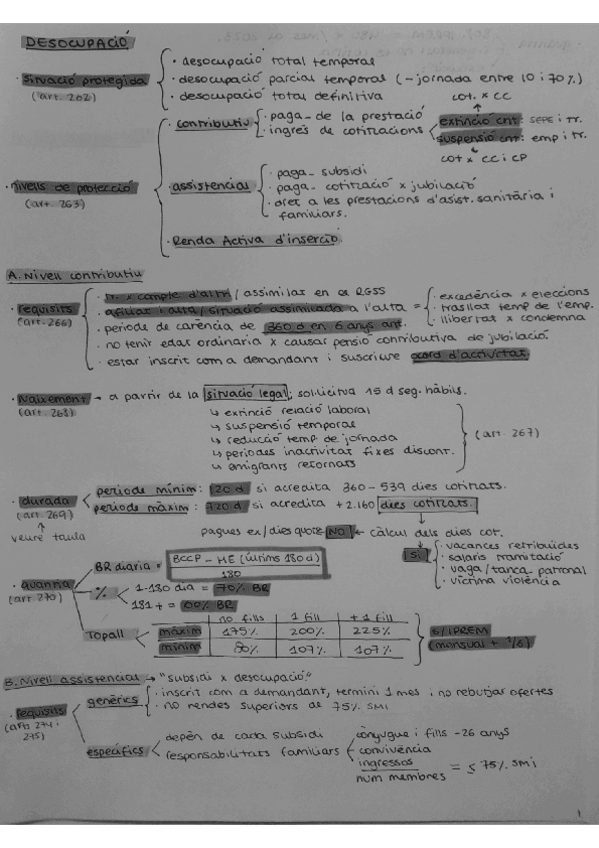 DESOCUPACIÓ
· Situació protegida (art. 262)
· desocupació total temporal
· desocupació parcial temporal (- jornada entre 10 i 70%)
· desocupació total definitiva
· nivells de protecció (art. 263)
· contributiu
· paga_ de la prestació
· ingrés de cotitzacions
cot. x CC
extinció cnt: SEPE i tr.
suspensió cnt: emp i tr.
cot x CC i CP
· assistencial
· paga_ subsidi
· paga_ cotització x jubilació
· dret a les prestacions d'asist. sanitària i familiars.
· Renda Activa d'inserció
A. Nivell contributiu
· requisits (art. 266)
· tr. x compte d'altri / assimilat en el RGSS
· afiliat i alta / situació assimilada a l'alta =
· excedència x eleccions
· trasllat temp de l'emp.
· llibertat x condemna
· període de carència de 360 d en 6 anys ant.
· no tenir edat ordinària x causar pensió contributiva de jubilació
· estar inscrit com a demandant i suscriure acord d'activitat
· Naixement → a partir de la situació legal; sol·licitud 15 d seg. hàbils.
(art. 268)
↳ extinció relació laboral
↳ suspensió temporal
↳ reducció temp de jornada
↳ períodes inactivitat fixes discont.
↳ emigrants retornats
(art. 267)
· durada (art. 269)
veure taula
període mínim: 120 d si acredita 360 - 539 dies cotitzats.
període màxim: 720 d si acredita +2.160 dies cotitzats.
pagues ex/dies quota NO ← càlcul dels dies cot.
SÍ
· vacances retribuïdes
· salaris tramitació
· vaga/tanca_ patronal
· víctima violència
· quantia (art 270)
BR diària = BCCP - HE (últims 180 d)
180
%
1-180 dia = 70% BR
181 + = 60% BR
Topall
no fills 1 fill + 1 fill
màxim 175% 200% 225%
mínim 80% 107% 107%
s/IPREM
(mensual + 1/6)
B. Nivell assistencial → "subsidi x desocupació"
· requisits (art. 274 i 275)
genèrics
· inscrit com a demandant, termini 1 mes i no rebutjar ofertes
· no rendes superiors de 75% SMI
específics
depèn de cada subsidi
responsabilitats familiars
cònjugue i fills -26 anys
convivència
ingressos
num membres = ≤ 75% SMI
1